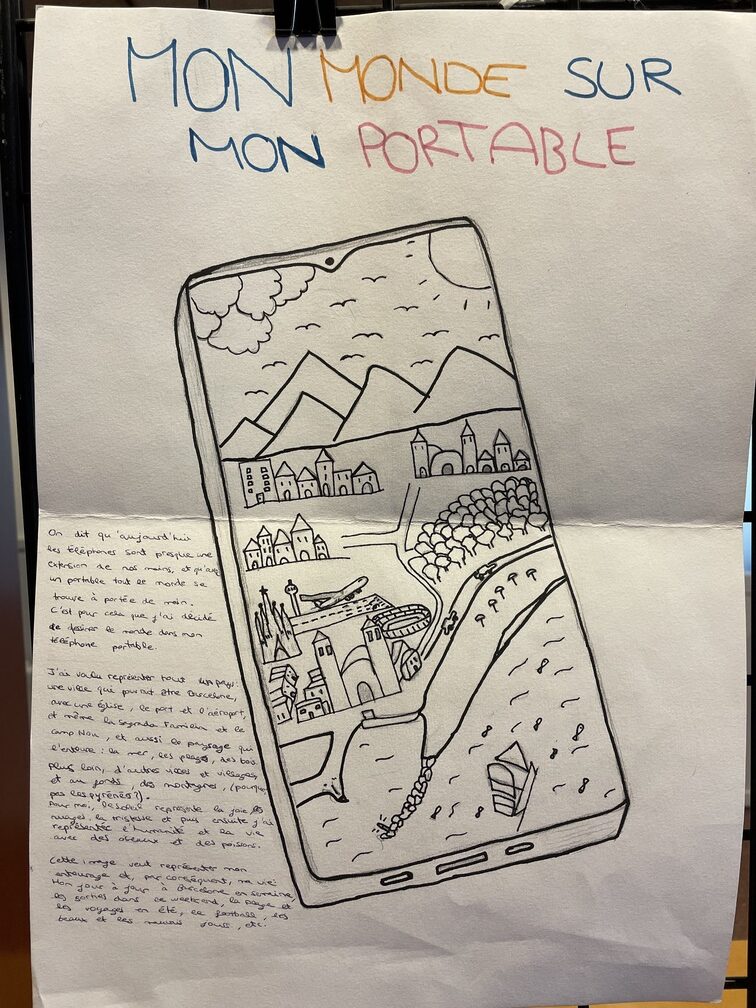 MON MONDE SUR
MON PORTABLE
On dit qu'aujourd'hui
les téléphones sont presque une
extension de nos mains, et qu'avec
un portable tout le monde se
trouve à portée de main.
C'est pour cela que j'ai décidé
de dessiner le monde dans mon
téléphone portable.
J'ai voulu représenter tout un pays:
une ville qui pourrait être Barcelone,
avec une église, le port et l'aéroport,
et même la Sagrada Familia et le
Camp Nou, et aussi le paysage qui
l'entoure: la mer, les plages, des bois
plus loin, d'autres villes et villages,
et au fond, des montagnes, (pourquoi
pas les pyrénées?).
Pour moi, le soleil représente la joie, les
nuages, la tristesse et puis ensuite j'ai
représentée l'humanité et la vie
avec des oiseaux et des poissons.
Cette image veut représenter mon
entourage et, par conséquent, ma vie:
Mon jour à jour à Barcelone en semaine,
les sorties dans ce weekend, la plage et
les voyages en été, le football, les
beaux et les mauvais jours, etc.